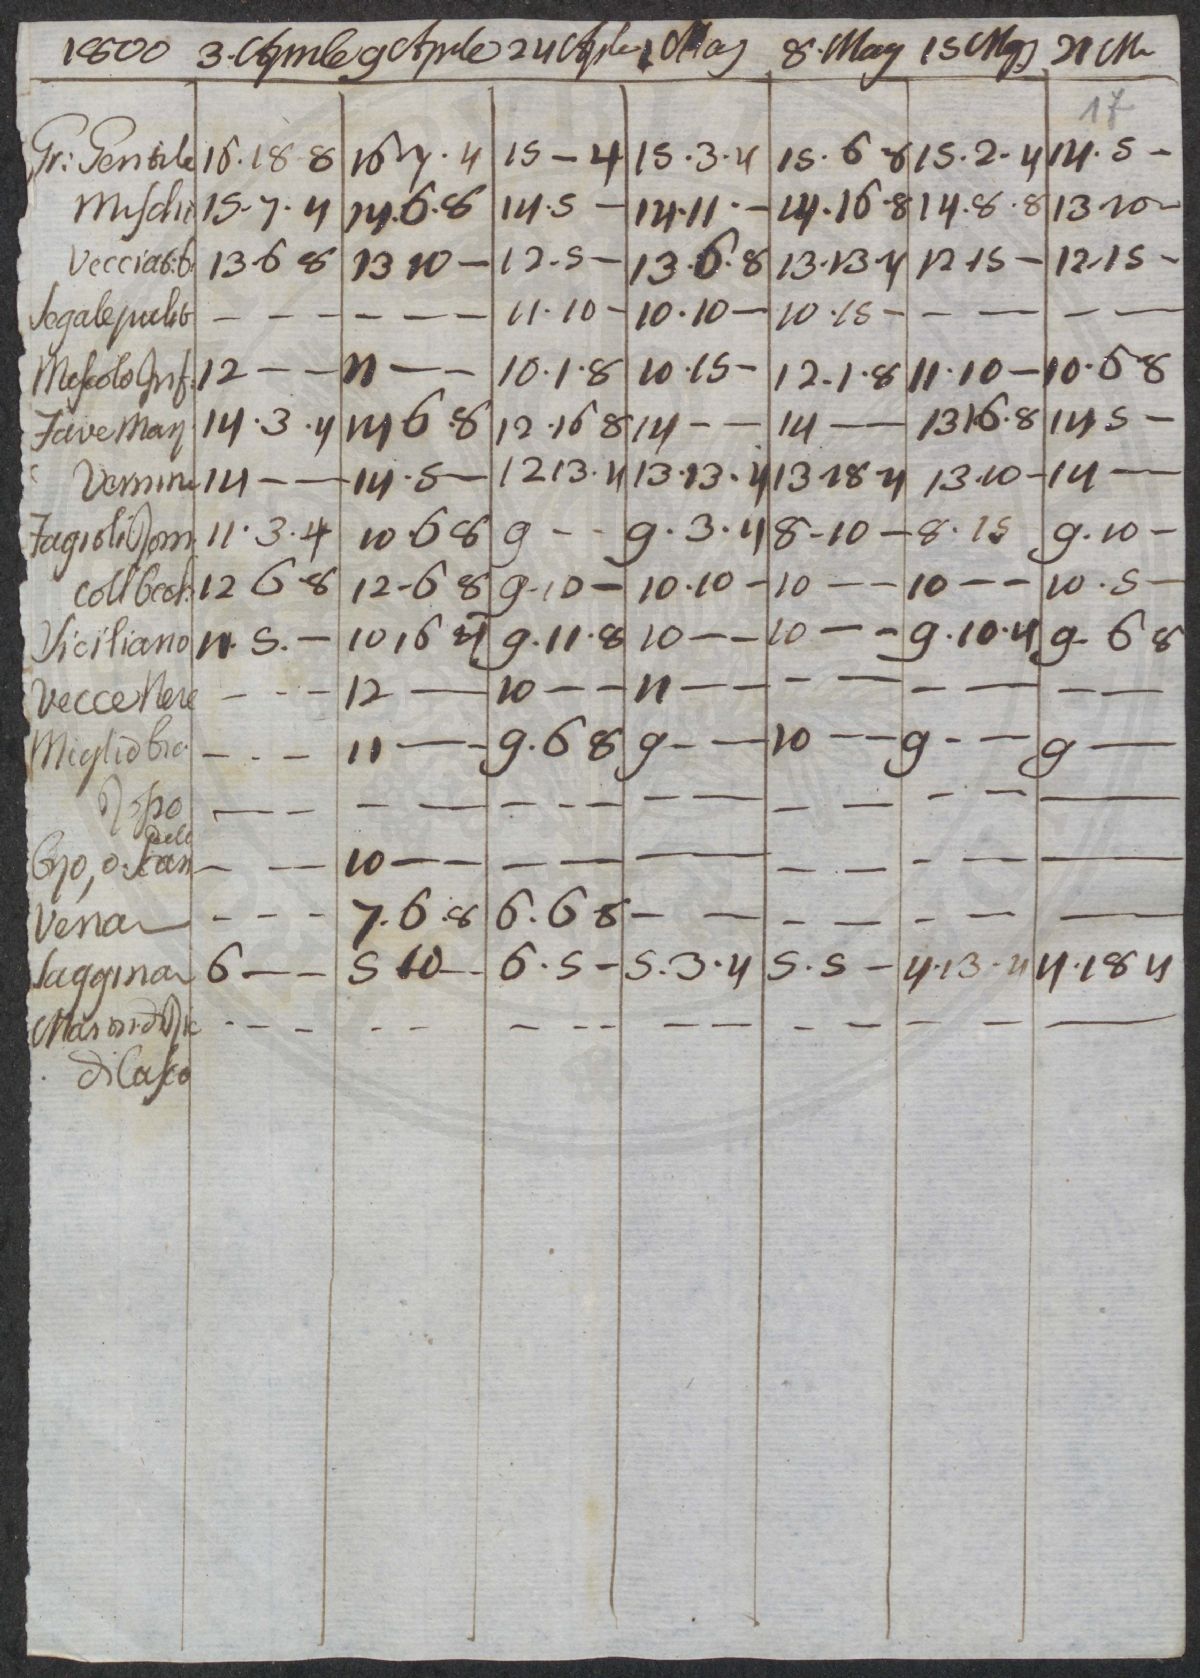 1800 3. Aprile 9 Aprile 24 Aprile 1 Mag 8. Mag 15 Mag 21 Ma
17
Gr: Gentile 16.18.8 16.7.4 15 – 4 15.3.4 15.6.8 15.2.4 14.5 –
Mischi 15.7.4 14.6.8 14.5 – 14.11. – 14.16.8 14.8.8 13.10 –
Vecciat.t. 13.6 8 13 10 – 12.5 – 13.6.8 13.13.4 12.15 – 12.15 –
Segale pulit – – – – – – 11.10 – 10.10 – 10.15 – – – – –
Mescolo Inf. 12 – – 11 – – 10.1.8 10.15 – 12.1.8 11.10 – 10.6 8
Fave Maz 14.3.4 14 6.8 12.16 8 14 – – 14 – – 13 16.8 14 5 –
Vernine 14 – – 14.5 – 12 13.4 13.13.4 13 18 4 13.10 – 14 –
Fagioli Rom 11.3.4 10.6 8 9 – – 9.3.4 8.10 – 8.15 9.10 –
coll'occh: 12 6.8 12.6 8 9.10 – 10.10 – 10 – – 10 – – 10.5 –
Siciliano 11.5. – 10 16 4 9.11.8 10 – – 10 – – 9.10.4 9.6 8
Vecce Nere – – – 12 – 10 – – 11 – – – – – – – –
Miglio bro. – – – 11 – – 9.6 8 9 – – 10 – – 9 – – 9 –
– – – – – – – – – – – – – – – –
Orzo, o. 10 – – – – – – – – – – – –
Vena – – – 7.6.8 6.6 8 – – – – – – –
Saggina 6 – – 5 10 – 6.5 – 5.3.4 5.5 – 4.13.4 4.18 4
– – – – – – – – – – – – – – –
di Casco